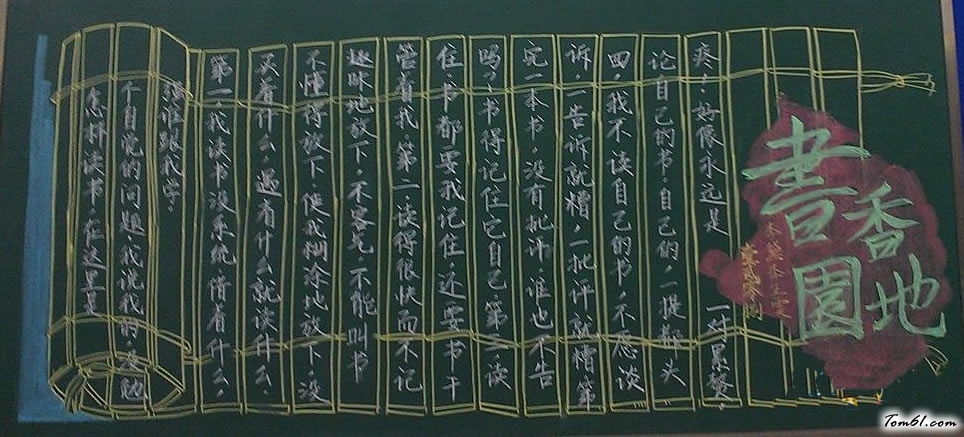 怎样读书,在这里是
个自觉的问题,我说我的,没勉
强谁跟我学。
第一,我读书没系统,借着什么,
买着什么,遇着什么就读什么。
不懂得放下,使我糊涂地放下,没
趣味地放下,不客气,不能叫书
管着我。第二,读得很快而不记
住,书都要我记住还要书干
吗?书得记住它自己。第三,读
完一本书,没有批评,谁也不告
诉,一告诉就糟,一批评就糟第
四,我不读自己的书,不愿谈
论自己的书,自己的,一提都头
疼,好像永远是 一对累赘,
書香
園地
Tom61.com